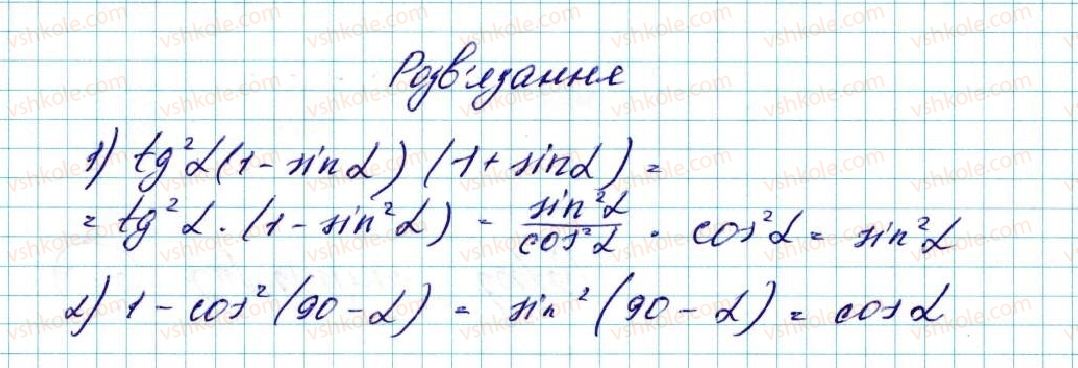 Розв'язання
1) tg²α(1 - sin α) (1 + sin α) =
= tg²α · (1 - sin²α) - sin²α/cos²α · cos²α = sin²α
2) 1 - cos²(90 - α) = sin²(90 - α) = cos α
vshkole.com